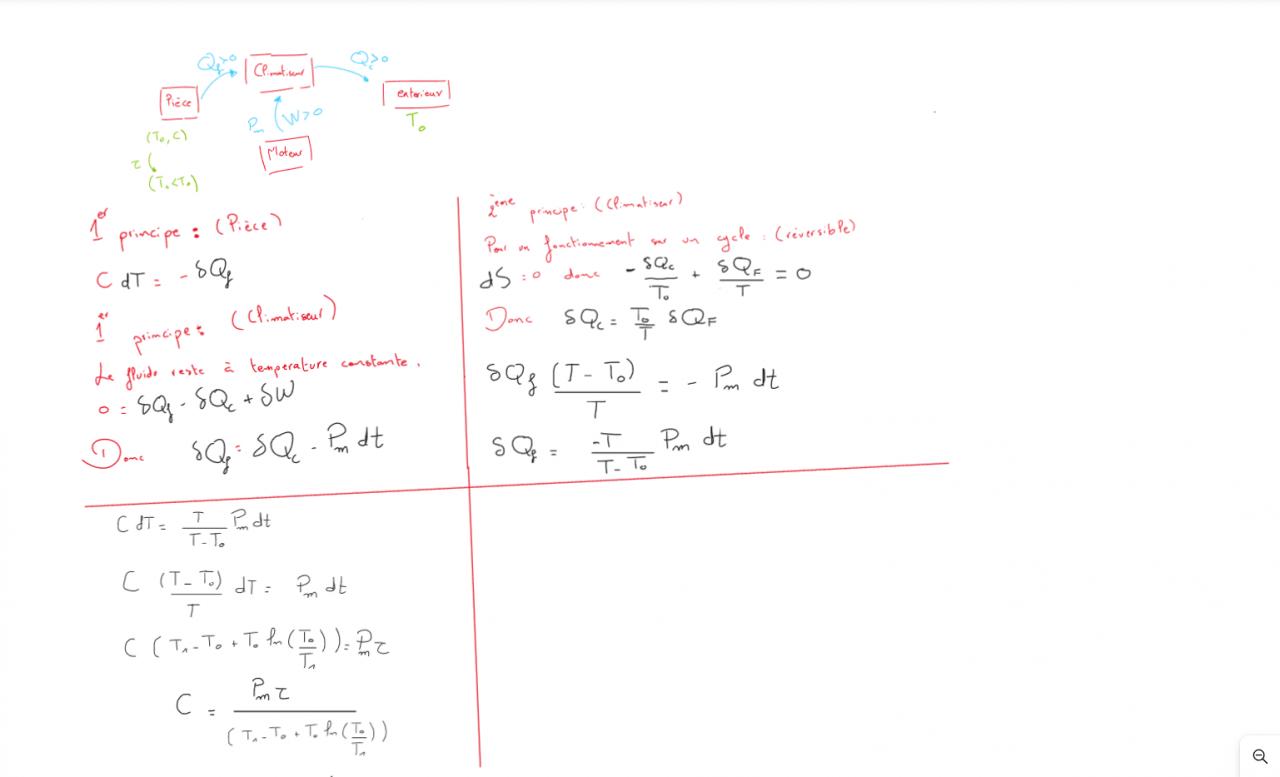 Q_f>0
Climatiseur
Q_c>0
Pièce
exterieur
P_m
W>0
T_0
(T_0, C)
Moteur
τ
(T_1<T_0)
1^er principe : (Pièce)
C dT = - δQ_f
1^er principe : (Climatiseur)
Le fluide reste à temperature constante.
0 = δQ_f - δQ_c + δW
Donc δQ_f = δQ_c - P_m dt
2^ème principe : (Climatiseur)
Pour un fonctionnement sur un cycle : (réversible)
dS = 0 donc - δQ_c/T_0 + δQ_F/T = 0
Donc δQ_c = T_0/T δQ_F
δQ_f (T - T_0)/T = - P_m dt
δQ_f = -T/(T - T_0) P_m dt
C dT = T/(T - T_0) P_m dt
C (T - T_0)/T dT = P_m dt
C (T_1 - T_0 + T_0 ln(T_0/T_1)) = P_m τ
C = P_m τ/(T_1 - T_0 + T_0 ln(T_0/T_1))